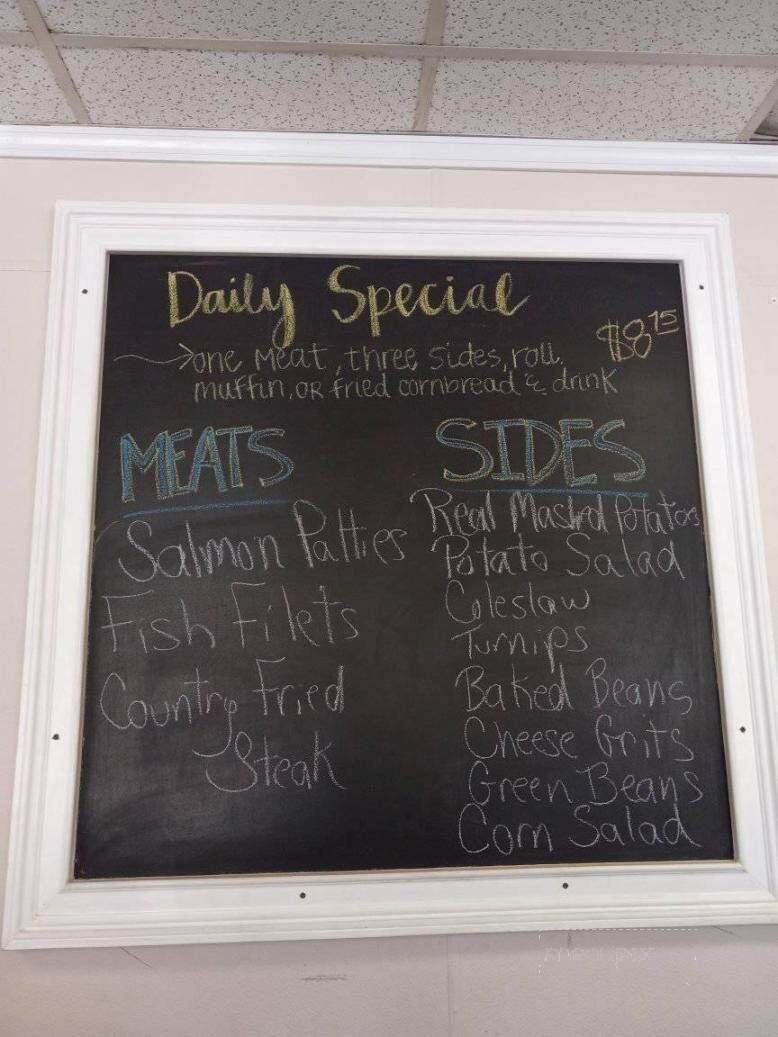 Daily Special
$8.75
one meat, three sides, roll,
muffin, OR fried cornbread & drink
MEATS
Salmon Patties
Fish Filets
Country Fried
Steak
SIDES
Real Mashed Potatoes
Potato Salad
Coleslaw
Turnips
Baked Beans
Cheese Grits
Green Beans
Corn Salad